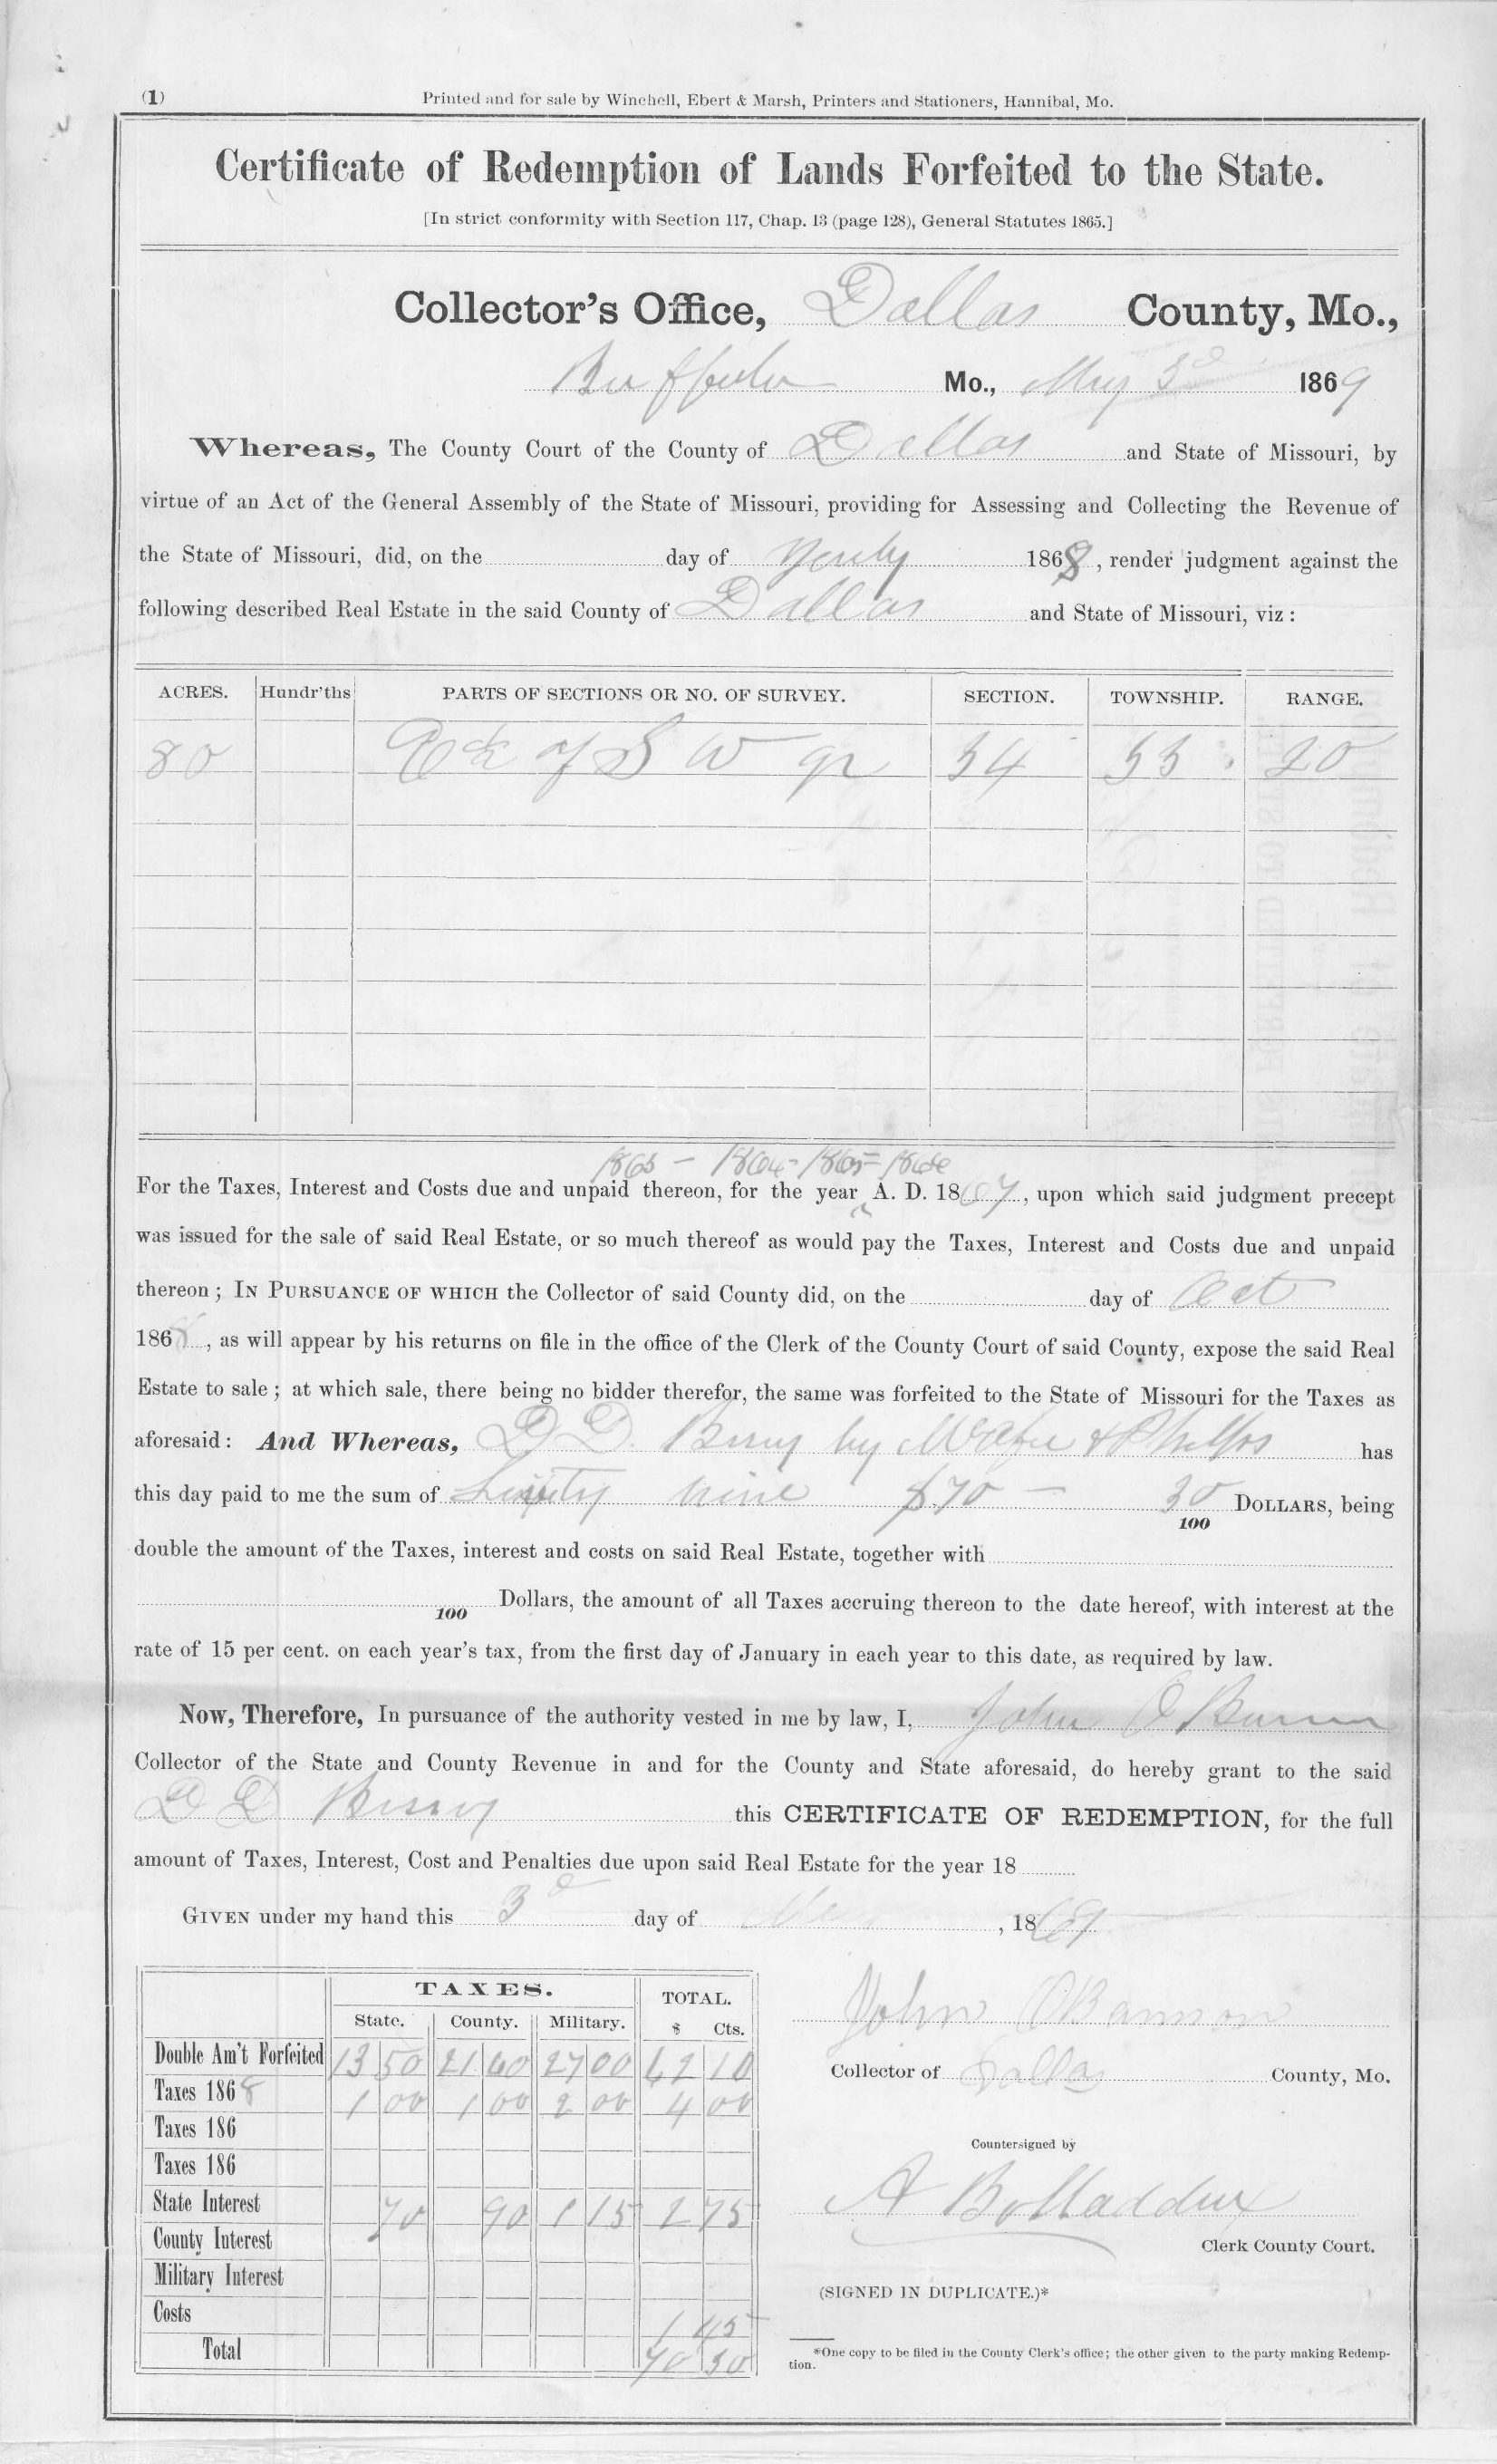 (1)
Printed and for sale by Winchell, Ebert & Marsh, Printers and Stationers, Hannibal, Mo.
Certificate of Redemption of Lands Forfeited to the State.
[In strict conformity with Section 117, Chap. 13 (page 128), General Statutes 1865.]
Collector's Office, Dallas County, Mo.,
Buffalo Mo., May 3d 1869
Whereas, The County Court of the County of Dallas and State of Missouri, by
virtue of an Act of the General Assembly of the State of Missouri, providing for Assessing and Collecting the Revenue of
the State of Missouri, did, on the day of 1868, render judgment against the
following described Real Estate in the said County of Dallas and State of Missouri, viz:
ACRES. Hundr'ths PARTS OF SECTIONS OR NO. OF SURVEY. SECTION. TOWNSHIP. RANGE.
80 of S W qr 34 33 20
1863 - 1864 - 1865 = 1866
For the Taxes, Interest and Costs due and unpaid thereon, for the year ^ A. D. 1867, upon which said judgment precept
was issued for the sale of said Real Estate, or so much thereof as would pay the Taxes, Interest and Costs due and unpaid
thereon; IN PURSUANCE OF WHICH the Collector of said County did, on the day of Oct
1868, as will appear by his returns on file in the office of the Clerk of the County Court of said County, expose the said Real
Estate to sale; at which sale, there being no bidder therefor, the same was forfeited to the State of Missouri for the Taxes as
aforesaid: And Whereas, D D. Berry by & Phelps has
this day paid to me the sum of nine $70 - 30/100 DOLLARS, being
double the amount of the Taxes, interest and costs on said Real Estate, together with
/100 Dollars, the amount of all Taxes accruing thereon to the date hereof, with interest at the
rate of 15 per cent. on each year's tax, from the first day of January in each year to this date, as required by law.
Now, Therefore, In pursuance of the authority vested in me by law, I, John O Bannon
Collector of the State and County Revenue in and for the County and State aforesaid, do hereby grant to the said
D D Berry this CERTIFICATE OF REDEMPTION, for the full
amount of Taxes, Interest, Cost and Penalties due upon said Real Estate for the year 18
GIVEN under my hand this 3d day of May, 1869
TAXES. TOTAL.
State. County. Military. $ Cts.
Double Am't Forfeited 13 50 21 60 27 00 62 10
Taxes 1868 1 00 1 00 2 00 4 00
Taxes 186
Taxes 186
State Interest 70 90 1 15 2 75
County Interest
Military Interest
Costs 1 45
Total 70 30
John OBannon
Collector of Dallas County, Mo.
Countersigned by
A Bolladdux
Clerk County Court.
(SIGNED IN DUPLICATE.)*
*One copy to be filed in the County Clerk's office; the other given to the party making Redemp-
tion.